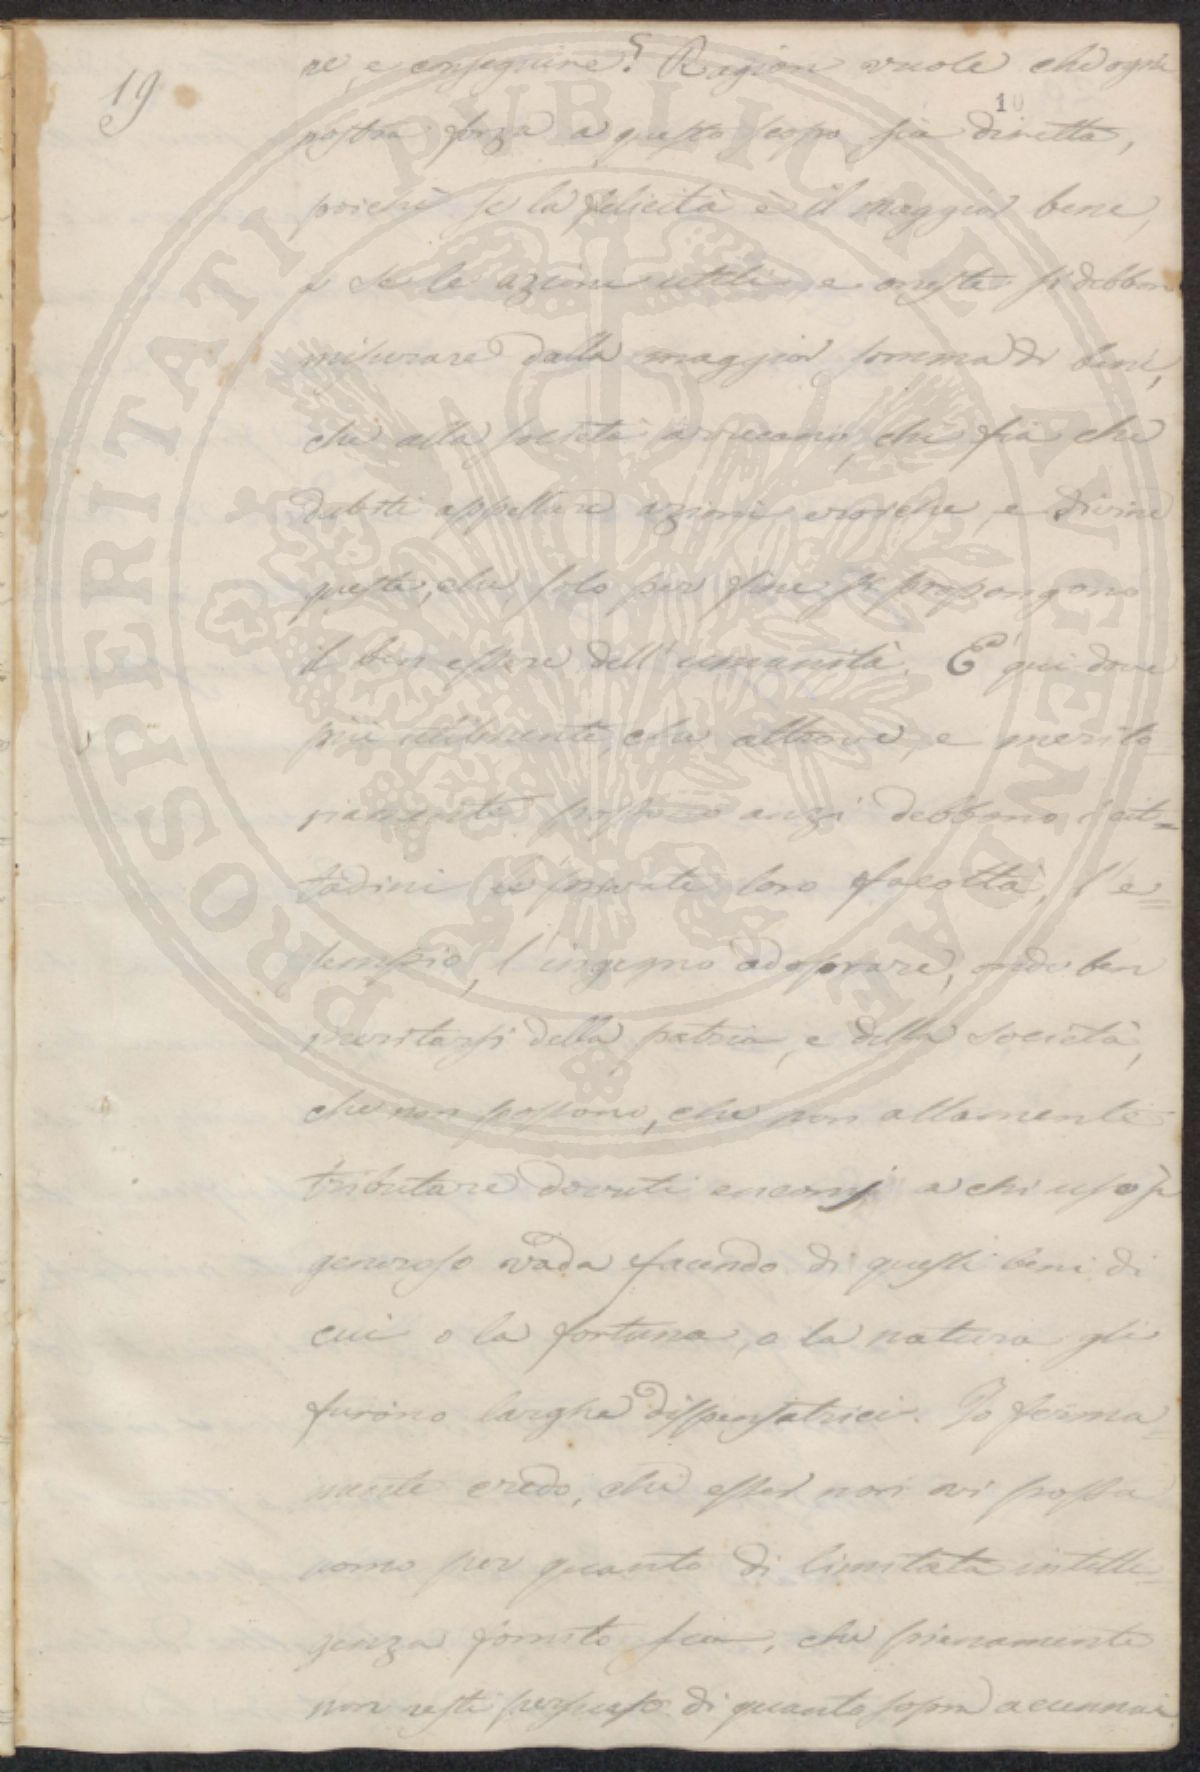 19
re, e conseguire? Ragion vuole che ogni
10
nostra forza a questo scopo sia diretta,
poichè se la felicità è il maggior bene,
e se le azioni utili, e oneste si debbon
misurare dalla maggior somma di beni,
che alla società arrecano, chi fia che
dubiti appellare azioni eroiche, e divine
queste, che solo per fine si propongono
il ben essere dell'umanità. E' qui dove
più utilmente che altrove, e merito-
riamente possono anzi debbono i cit=
tadini le private loro facoltà, l'e=
sempio, l'ingegno adoprare, onde ben
meritarsi della patria, e della società,
che non possono, che non altamente
tributare dovuti encomj a chi uso sì
generoso vada facendo di questi beni di
cui o la fortuna, o la natura gli
furono larghe dispensatrici. Io ferma=
mente credo, che esser non vi possa
uomo per quanto di limitata intelli=
genza fornito sia, che pienamente
non resti persuaso di quanto sopra accennai
PROSPERITATI PUBLICAE AUGENDAE